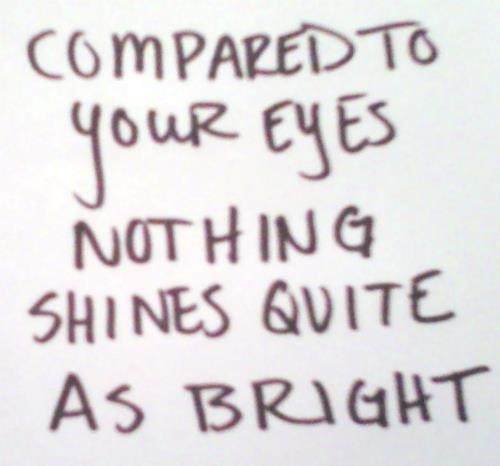 COMPARED TO
YOUR EYES
NOTHING
SHINES QUITE
AS BRIGHT